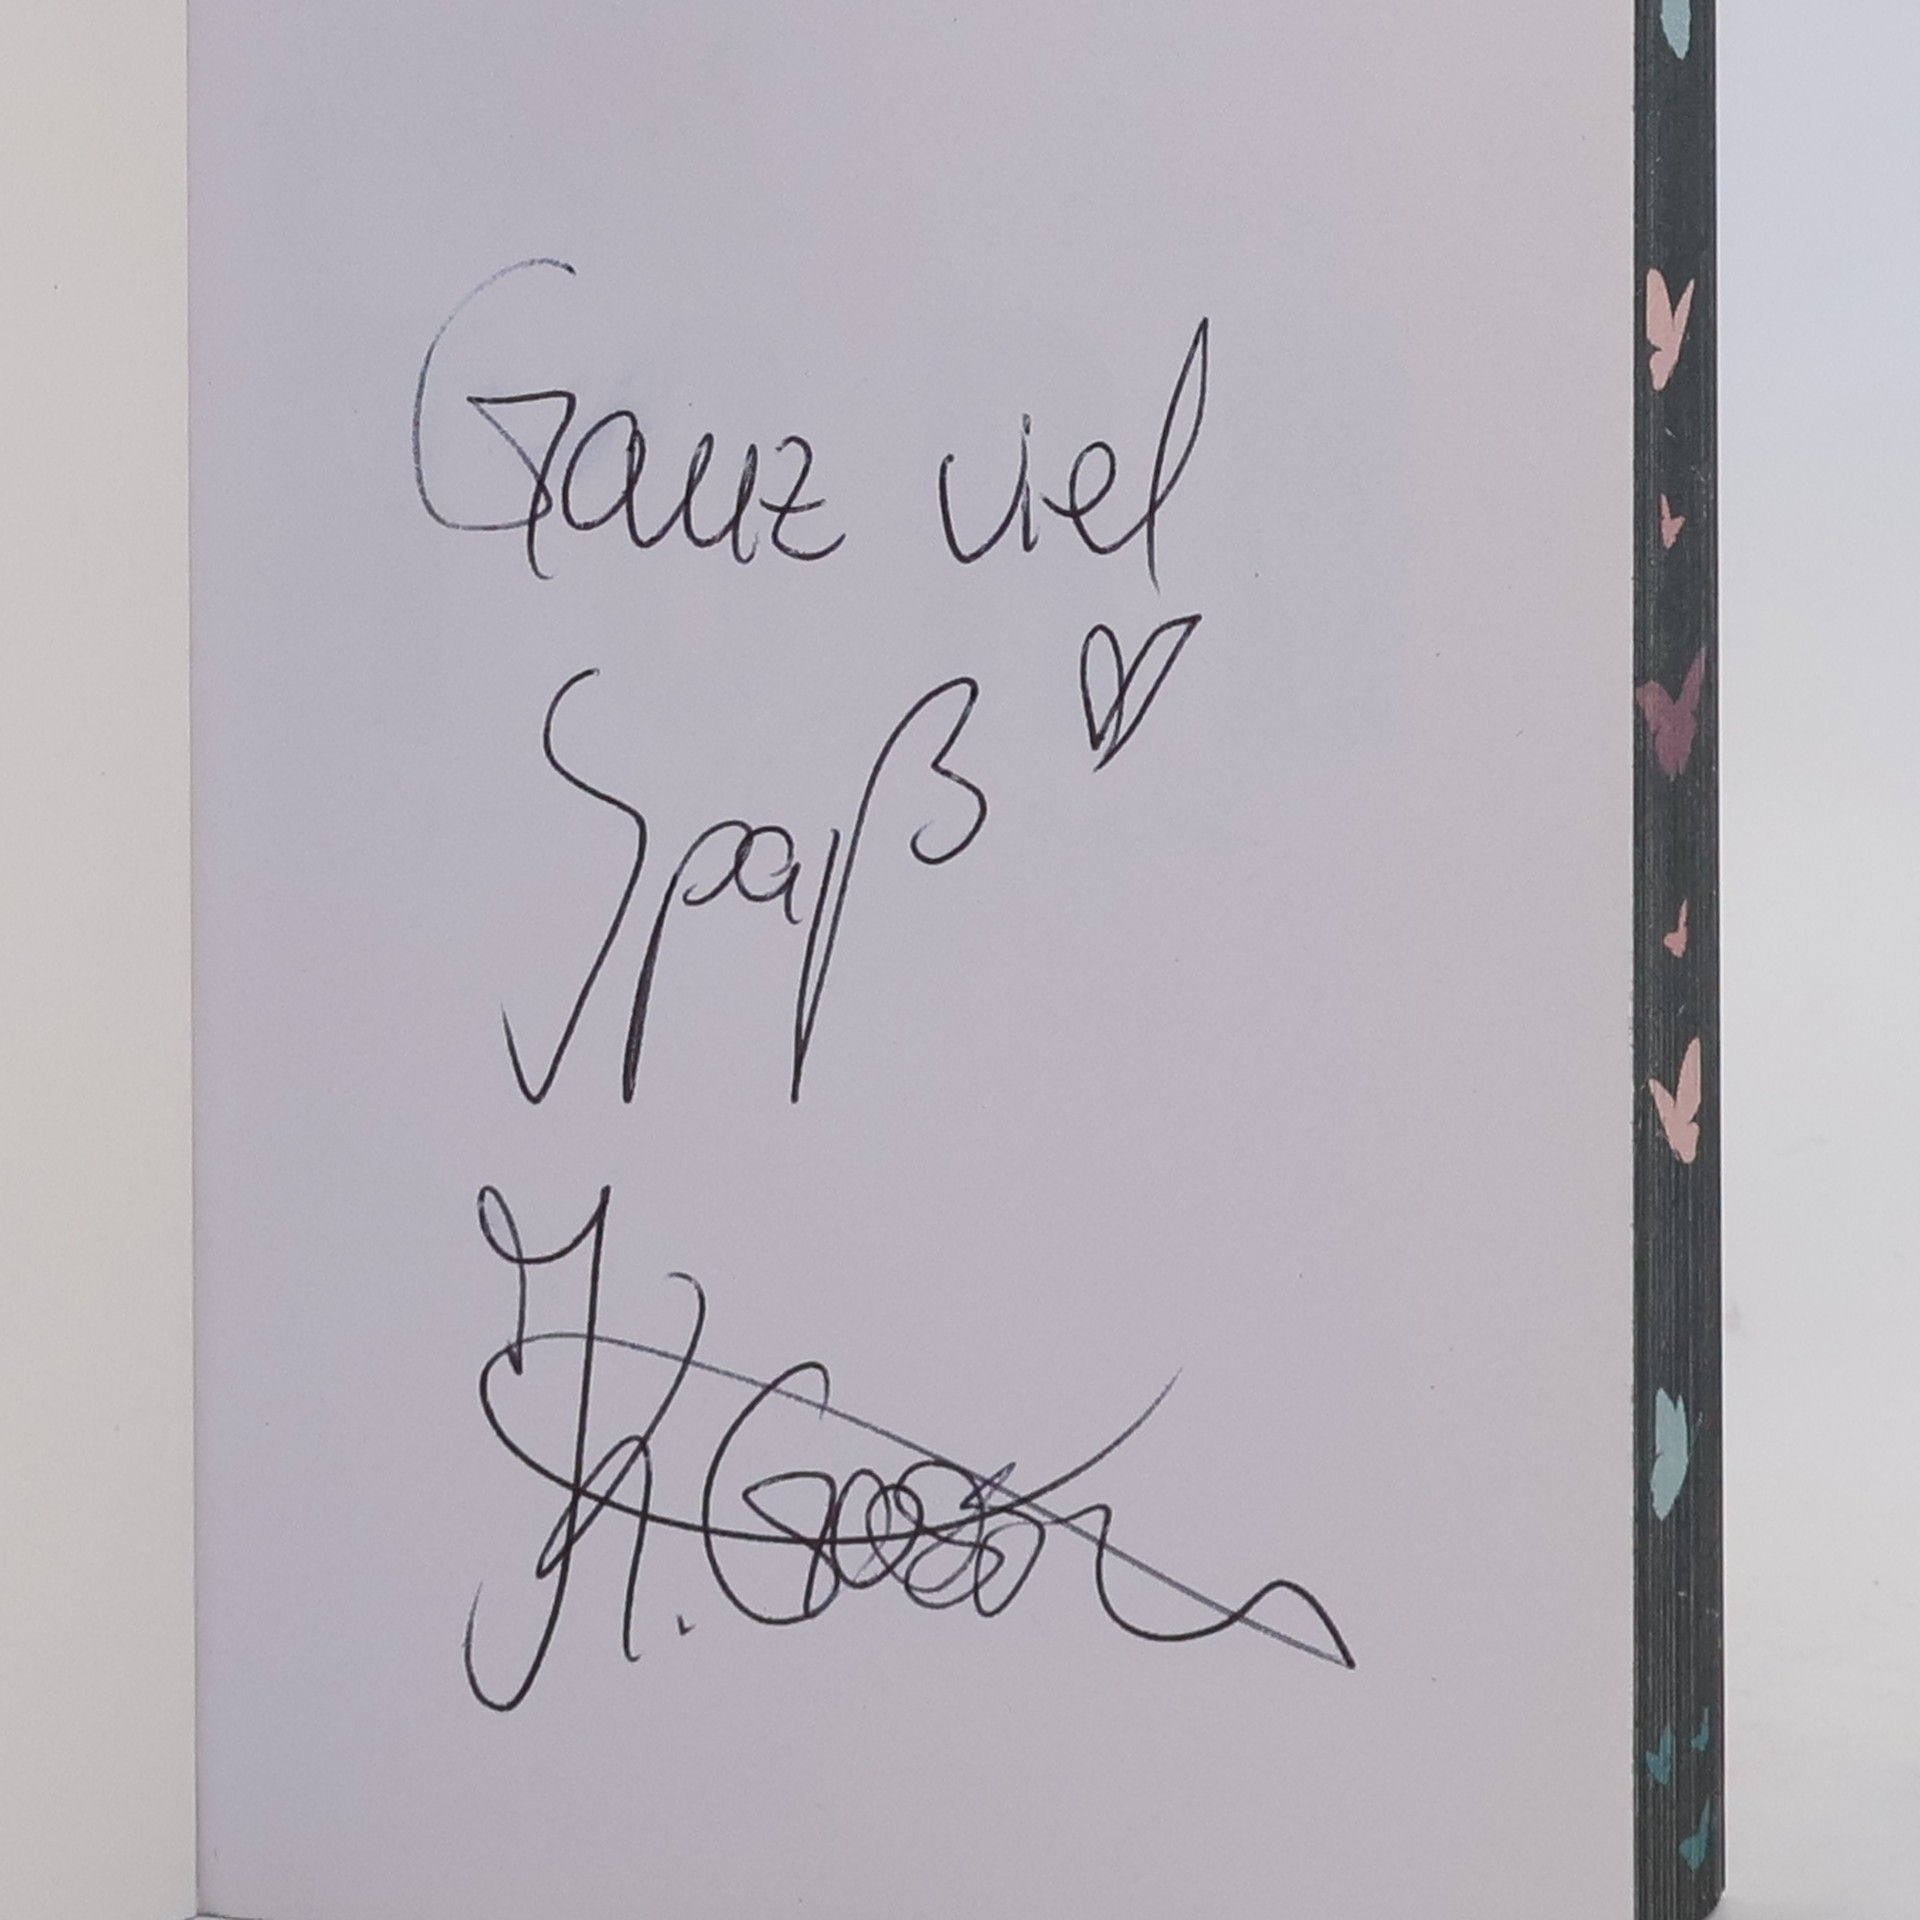 Ganz viel
Spaß ♡
K.